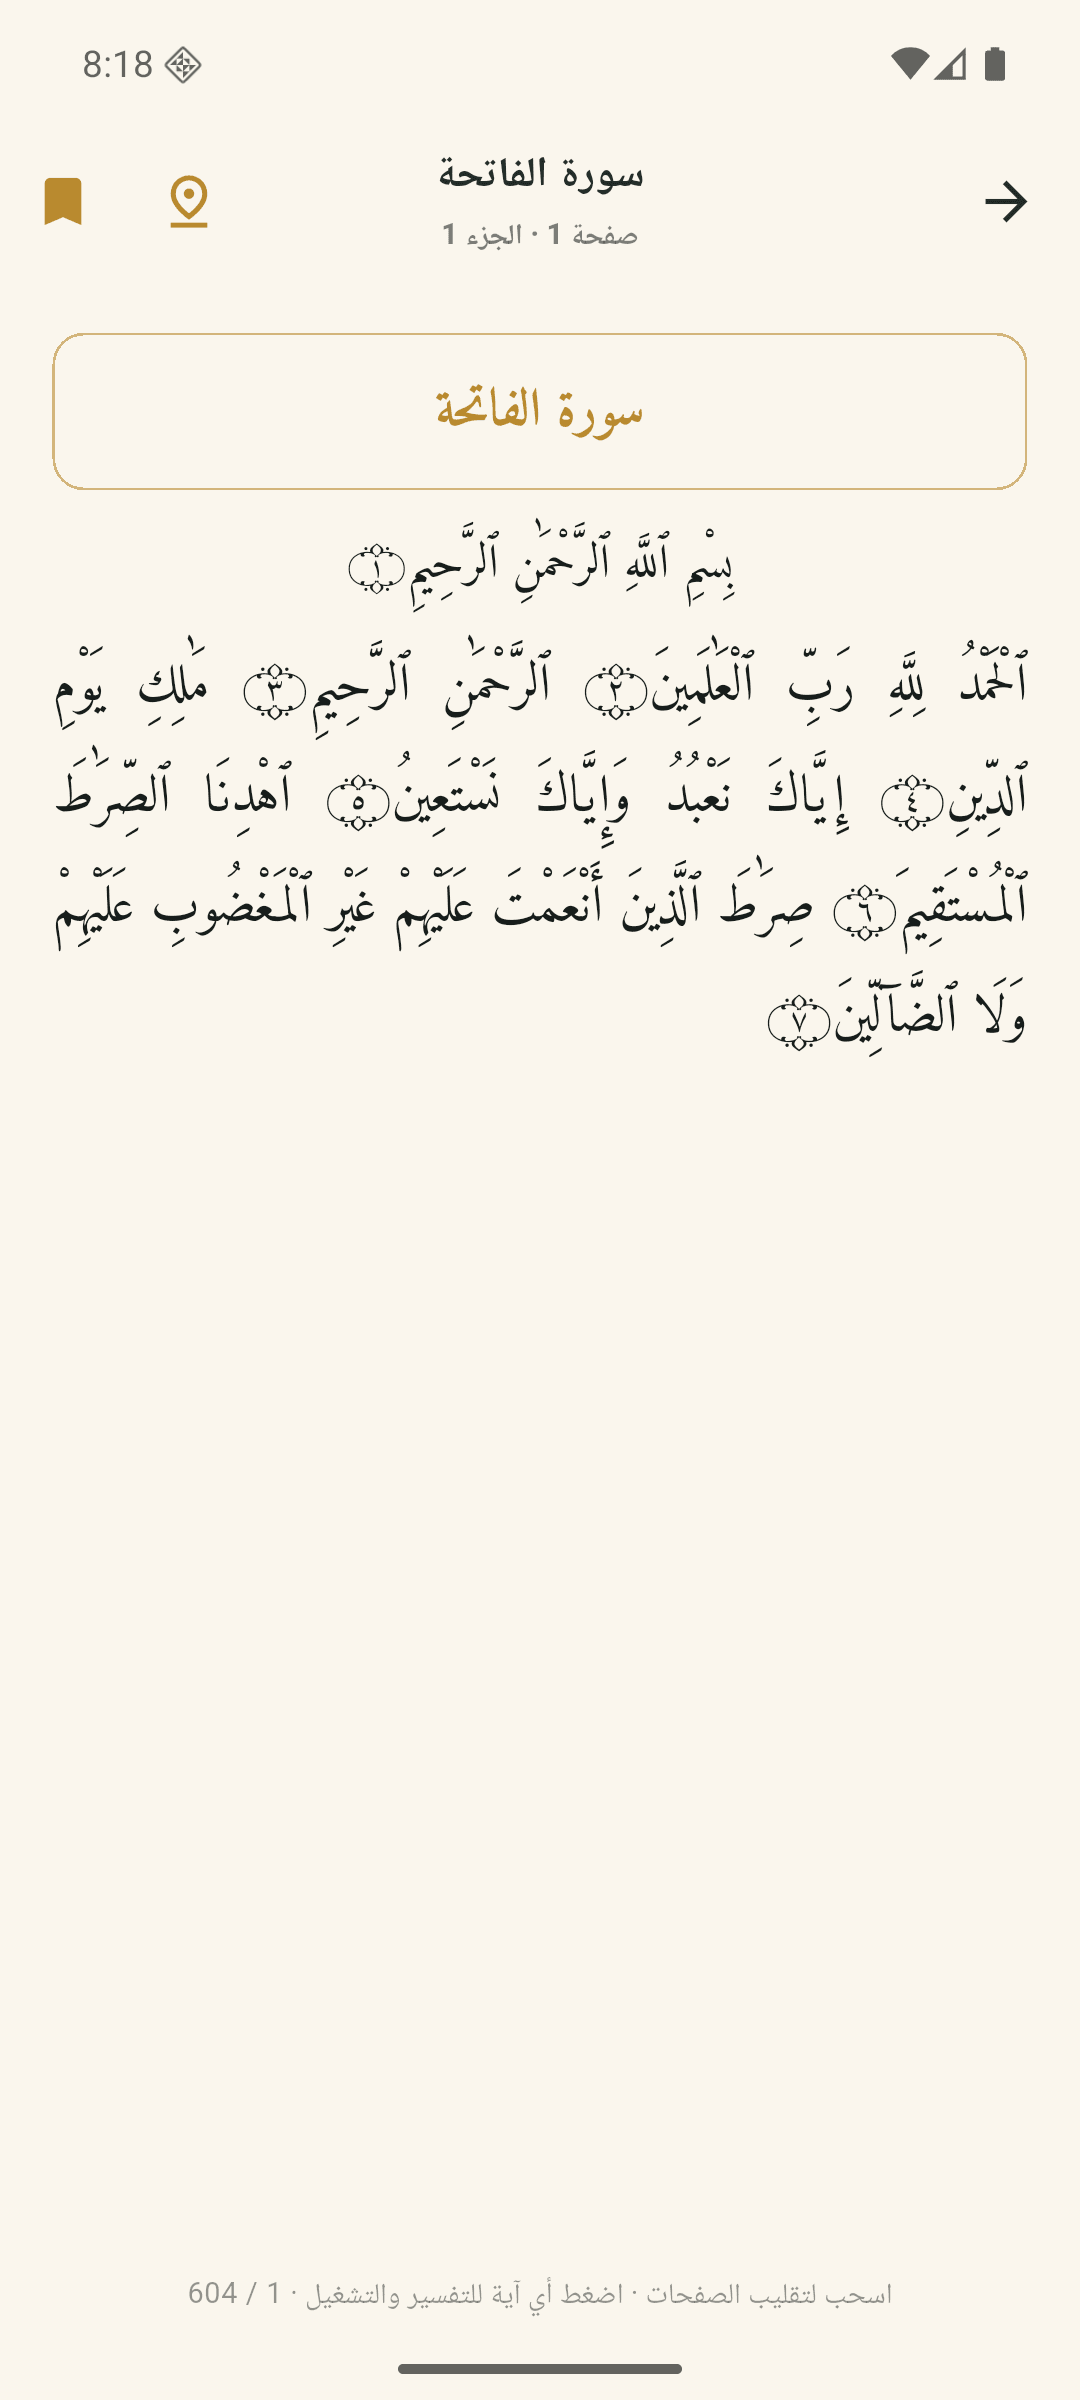 8:18
سورة الفاتحة
صفحة 1 · الجزء 1
سورة الفاتحة
بِسْمِ ٱللَّهِ ٱلرَّحْمَٰنِ ٱلرَّحِيمِ ١
ٱلْحَمْدُ لِلَّهِ رَبِّ ٱلْعَٰلَمِينَ ٢ ٱلرَّحْمَٰنِ ٱلرَّحِيمِ ٣ مَٰلِكِ يَوْمِ
ٱلدِّينِ ٤ إِيَّاكَ نَعْبُدُ وَإِيَّاكَ نَسْتَعِينُ ٥ ٱهْدِنَا ٱلصِّرَٰطَ
ٱلْمُسْتَقِيمَ ٦ صِرَٰطَ ٱلَّذِينَ أَنْعَمْتَ عَلَيْهِمْ غَيْرِ ٱلْمَغْضُوبِ عَلَيْهِمْ
وَلَا ٱلضَّآلِّينَ ٧
اسحب لتقليب الصفحات · اضغط أي آية للتفسير والتشغيل · 1 / 604